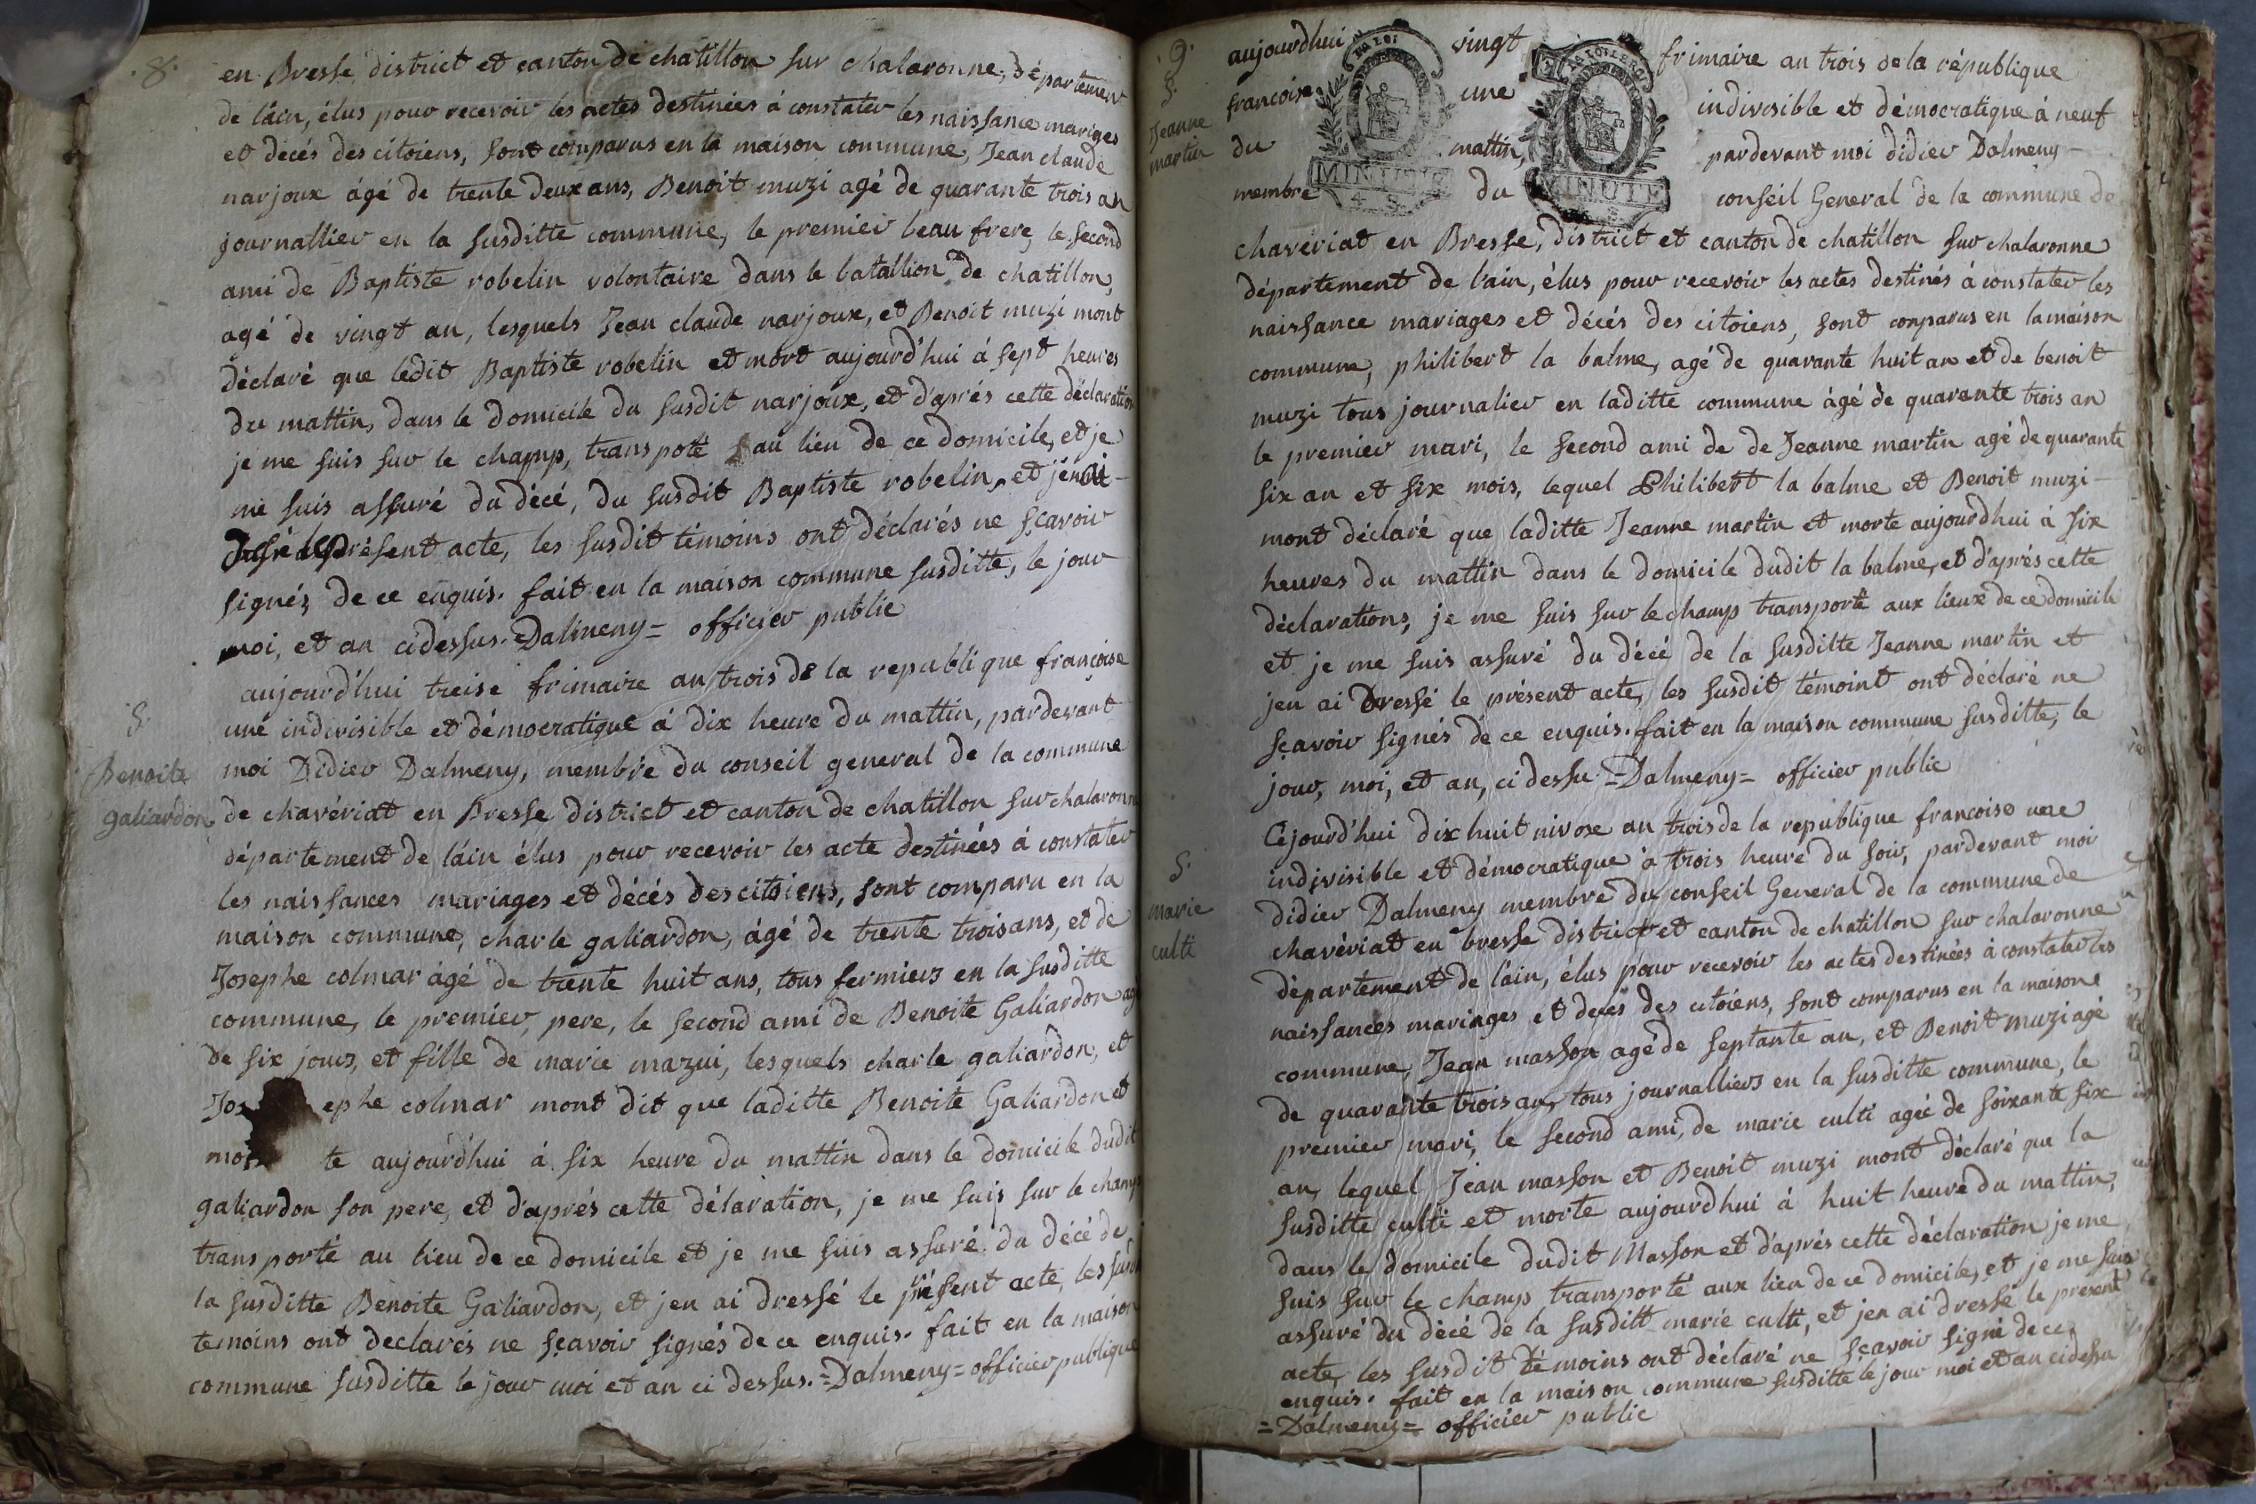 .8.
en Bresse district et canton de chatillon sur chalaronne, département
de l'ain, élus pour recevoir les actes destinées á constater les naissance mariges
et decés des citoiens, sont comparus en la maison commune, Jean claude
narjoux ágé de trente deux ans, Benoit muzi agé de quarante trois an
journallier en la susditte commune, le premier beau frere, le second
ami de Baptiste robelin volontaire dans le batallion de chatillon,
agé de vingt an, lesquels Jean claude narjoux, et Benoit muzi mont
déclaré que ledit Baptiste robelin et mort aujourd'hui á sept heures
du mattin, dans le domicile du susdit narjoux, et d'aprés cette déclaration
je me suis sur le champ, transpoté au lieu de ce domicile, et je
me suis assuré du décé, du susdit Baptiste robelin, et j'en ai
dressé le présent acte, les susdit témoins ont déclarés ne sçavoir
signés de ce enquis. fait en la maison commune susditte, le jour
moi, et an cidessus. =Dalmeny= officier public
S.
Benoite
galiardon
aujourd'hui treise frimaire an trois de la republique françoise
une indivisible et démocratique á dix heure du mattin, pardevant
moi Didier Dalmeny, membre du conseil general de la commune
de chavériat en Bresse district et canton de chatillon sur chalaronne
département de l'ain élus pour recevoir les acte destinées á constater
les naissances mariages et décés des citoiens, sont comparu en la
maison commune, charle galiardon, ágé de trente trois ans, et de
Josephe colmar ágé de trente huit ans, tous fermiers en la susditte
commune, le premier, pere, le second ami de Benoite Galiardon agé
de six jours, et fille de marie mazui, lesquels charle galiardon, et
Jos ephe colmar mont dit que laditte Benoite Galiardon et
mor te aujourd'hui á six heure du mattin dans le domicile dudit
galiardon son pere, et d'aprés cette délaration, je me suis sur le champ
transporté au lieu de ce domicile et je me suis assuré du décé de
la susditte Benoite Galiardon, et jen ai dressé le présent acte, les susdit
temoins ont declarés ne sçavoir signés de ce enquis. fait en la maison
commune susditte le jour moi et an ci dessus. =Dalmeny= officier publique
.9.
S.
Jeanne
martin
LA LOI
MINUTE
4 S.
MINUTE
aujourdhui vingt frimaire an trois de la république
françoise une indivisible et démocratique á neuf
du mattin, pardevant moi didier Dalmeny
membre du conseil General de la commune de
chavériat en Bresse, district et canton de chatillon sur chalaronne
département de l'ain, élus pour recevoir les actes destinés á constater les
naissance mariages et décés des citoiens, sont conparus en la maison
commune, philibert la balme, agé de quarante huit an et de benoit
muzi tous journalier en laditte commune ágé de quarante trois an
le premier mari, le second ami de de Jeanne martin agé de quarante
six an et six mois, lequel Philibert la balme et Benoit muzi
mont déclaré que laditte Jeanne martin et morte aujourdhui á six
heures du mattin dans le domicile dudit la balme, et d'aprés cette
déclarations, je me suis sur le champ transporté aux lieux de ce domicile
et je me suis assuré du décé de la susditte Jeanne martin et
jen ai dressé le présent acte, les susdit témoint ont déclaré ne
sçavoir signés de ce enquis. fait en la maison commune susditte, le
jour, moi, et an, ci dessu =Dalmeny= officier public
S.
marie
culti
Cejourd'hui dix huit nivose an trois de la republique françoise une
indivisible et démocratique á trois heure du soir, pardevant moi
didier Dalmeny membre du conseil General de la commune de
chavériat en bresse district et canton de chatillon sur chalaronne
département de l'ain, élus pour recevoir les actes destinées á constater les
naissances mariages et decés des citoiens, sont comparus en la maison
commune, Jean masson agé de septante an, et Benoit muzi agé
de quarante trois an, tous journalliers en la susditte commune, le
premier mari, le second ami, de marie culti agée de soixante six
an, lequel Jean masson et Benoit muzi mont déclaré que la
susditte culti et morte aujourdhui á huit heure du mattin,
dans le domicile dudit Masson et d'aprés cette déclaration je me
suis sur le champ transporté aux lieu de ce domicile, et je me suis
assuré du décé de la susditt marie culti, et jen ai dressé le présent
acte, les susdit témoins ont déclaré ne sçavoir signé de ce
enquis. fait en la maison commune susditte le jour moi et an cidessu
=Dalmeny= officier public